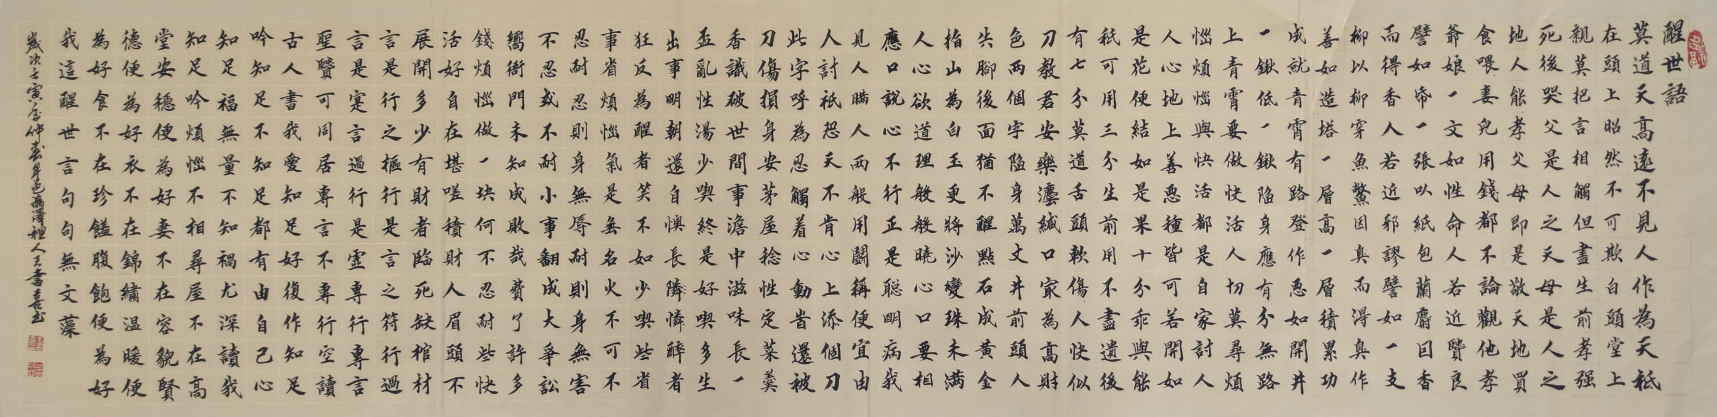 醒世語
莫道天高遠不見人作為天祗
在頭上昭然不可欺白頭堂上
親莫把言相觸但盡生前孝强
死後哭父是人之天母是人之
地人能孝父母即是敬天地買
食喂妻兒用錢都不論觀他孝
爺娘一文如性命人若近賢良
譬如帋一張以紙包蘭麝因香
而得香人若近邪謬譬如一支
柳以柳穿魚鱉因臭而得臭作
善如造塔一層高一層積累功
成就青霄有路登作惡如開井
一鍬低一鍬陷身應有分無路
上青霄要做快活人切莫尋煩
惱煩惱與快活都是自家討人
人心地上善惡種皆可若開如
是花便結如是果十分乖與能
秖可用三分生前用不盡遺後
有七分莫道舌頭軟傷人快似
刀教君安樂瀍緘口家為高財
色兩個字陷身萬丈井前頭人
失腳後面猶不醒點石成黃金
指山為白玉更將沙變珠未滿
人心欲道理般般曉心口要相
應口說心不行正是聪明病我
見人瞞人兩般用鬭稱便宜由
人討祇怨天不肯心上添個刀
此字呼為忍觸着心動皆還被
刀傷損身安茅屋稔性定菜羹
香識破世間事澹中滋味長一
盃亂性湯少喫終是好喫多生
出事明朝還自懊長隣憐醉者
狂反為醒者笑不如少喫些省
事省煩惱氣是無名火不可不
忍耐忍則身無辱耐則身無害
不忍或不耐小事翻成大爭訟
嚮衙門未知成敗哉費了許多
錢煩惱做一块何不忍耐些快
活好自在堪嗟積財人眉頭不
展開多少有財者臨死缺棺材
言是行之樞行是言之符行過
言是寔言過行是虛專行專言
聖賢可同居專言不專行空讀
古人書我愛知足好復作知足
吟知足不知足都有由自己心
知足福無量不知禍尤深讀我
知足吟煩惱不相尋屋不在高
堂安穩便為好妻不在容貌賢
德便為好衣不在錦繡温暖便
為好食不在珍饈腹飽便為好
我這醒世言句句無文藻
歲次壬寅年仲春